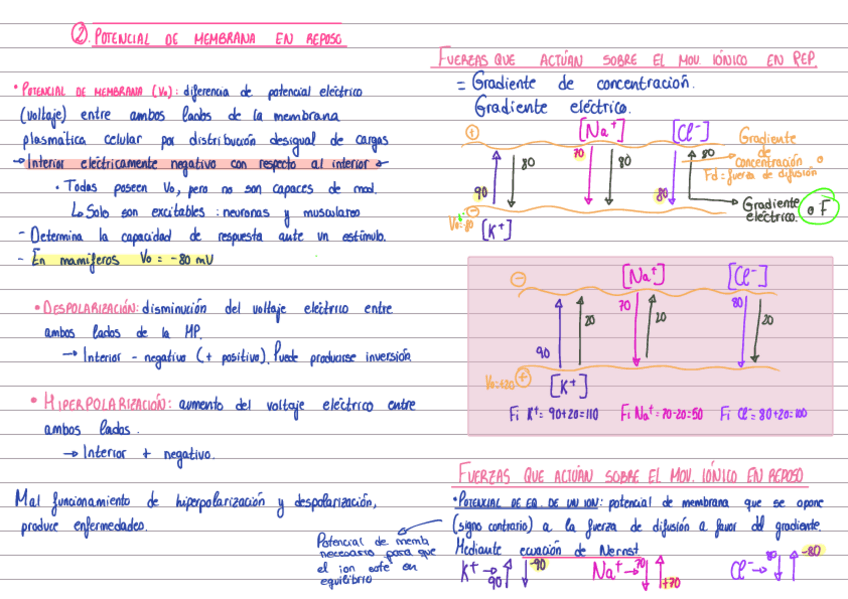 ② POTENCIAL DE MEMBRANA EN REPOSO
• POTENCIAL DE MEMBRANA (Vo): diferencia de potencial eléctrico
(voltaje) entre ambos lados de la membrana
plasmática celular por distribución desigual de cargas
→ Interior eléctricamente negativo con respecto al interior
• Todas poseen Vo, pero no son capaces de mod.
↳ Solo son excitables: neuronas y musculares
- Determina la capacidad de respuesta ante un estímulo.
- En mamíferos Vo = -80 mV
• DESPOLARIZACIÓN: disminución del voltaje eléctrico entre
ambos lados de la MP.
→ Interior - negativo (+ positivo). Puede producirse inversión
• HIPERPOLARIZACIÓN: aumento del voltaje eléctrico entre
ambos lados.
→ Interior + negativo.
Mal funcionamiento de hiperpolarización y despolarización,
produce enfermedades.
FUERZAS QUE ACTÚAN SOBRE EL MOV. IÓNICO EN PEP.
= Gradiente de concentración.
Gradiente eléctrico.
+ [Na+] [Cl-]
70 80 80 80
90 80
Gradiente
de
concentración o
Fd = fuerza de difusión
Gradiente
eléctrico. o F
Vo=-80 - [K+]
- [Na+] [Cl-]
20 70 20 80 20
90
Vo=+20 + [K+]
Fi K+ = 90+20=110 Fi Na+ = 70-20=50 Fi Cl- = 80+20=100
FUERZAS QUE ACTÚAN SOBRE EL MOV. IÓNICO EN REPOSO
• POTENCIAL DE EQ. DE UN ION: potencial de membrana que se opone
(signo contrario) a la fuerza de difusión a favor del gradiente
Mediante ecuación de Nernst
Potencial de memb
necesario para que
el ion esté en
equilibrio
K+ → 90 -90 Na+ → 70 +70 Cl- → 80 -80